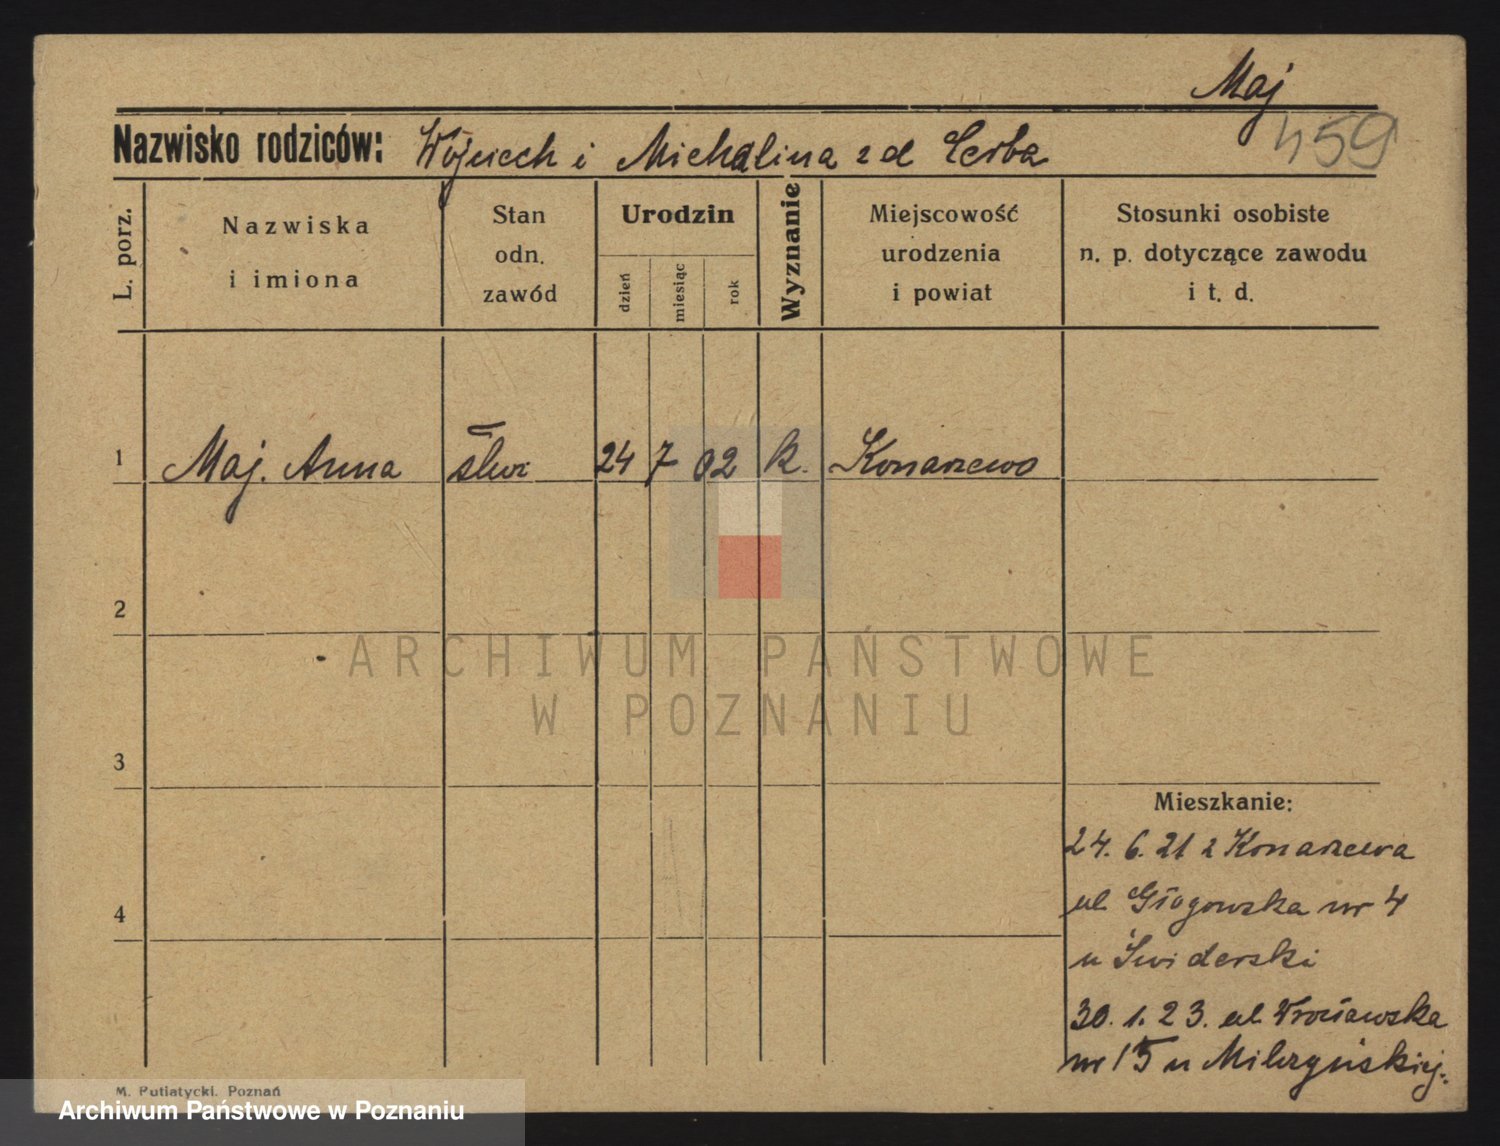 Maj
459
Nazwisko rodziców: Wojciech i Michalina z d Cerba
L. porz.
Nazwiska i imiona
Stan odn. zawód
Urodzin
dzień
miesiąc
rok
Wyznanie
Miejscowość urodzenia i powiat
Stosunki osobiste n. p. dotyczące zawodu i t. d.
1 Maj. Anna 24 7 02 k. Konarzewo
2
3
4
ARCHIWUM PAŃSTWOWE
W POZNANIU
Mieszkanie:
24. 6. 21 z Konarzewa
ul Głogowska nr 4
u Świderski
30. 1. 23. ul. Wrocławska
nr 15 u
M. Putiatycki. Poznań
Archiwum Państwowe w Poznaniu